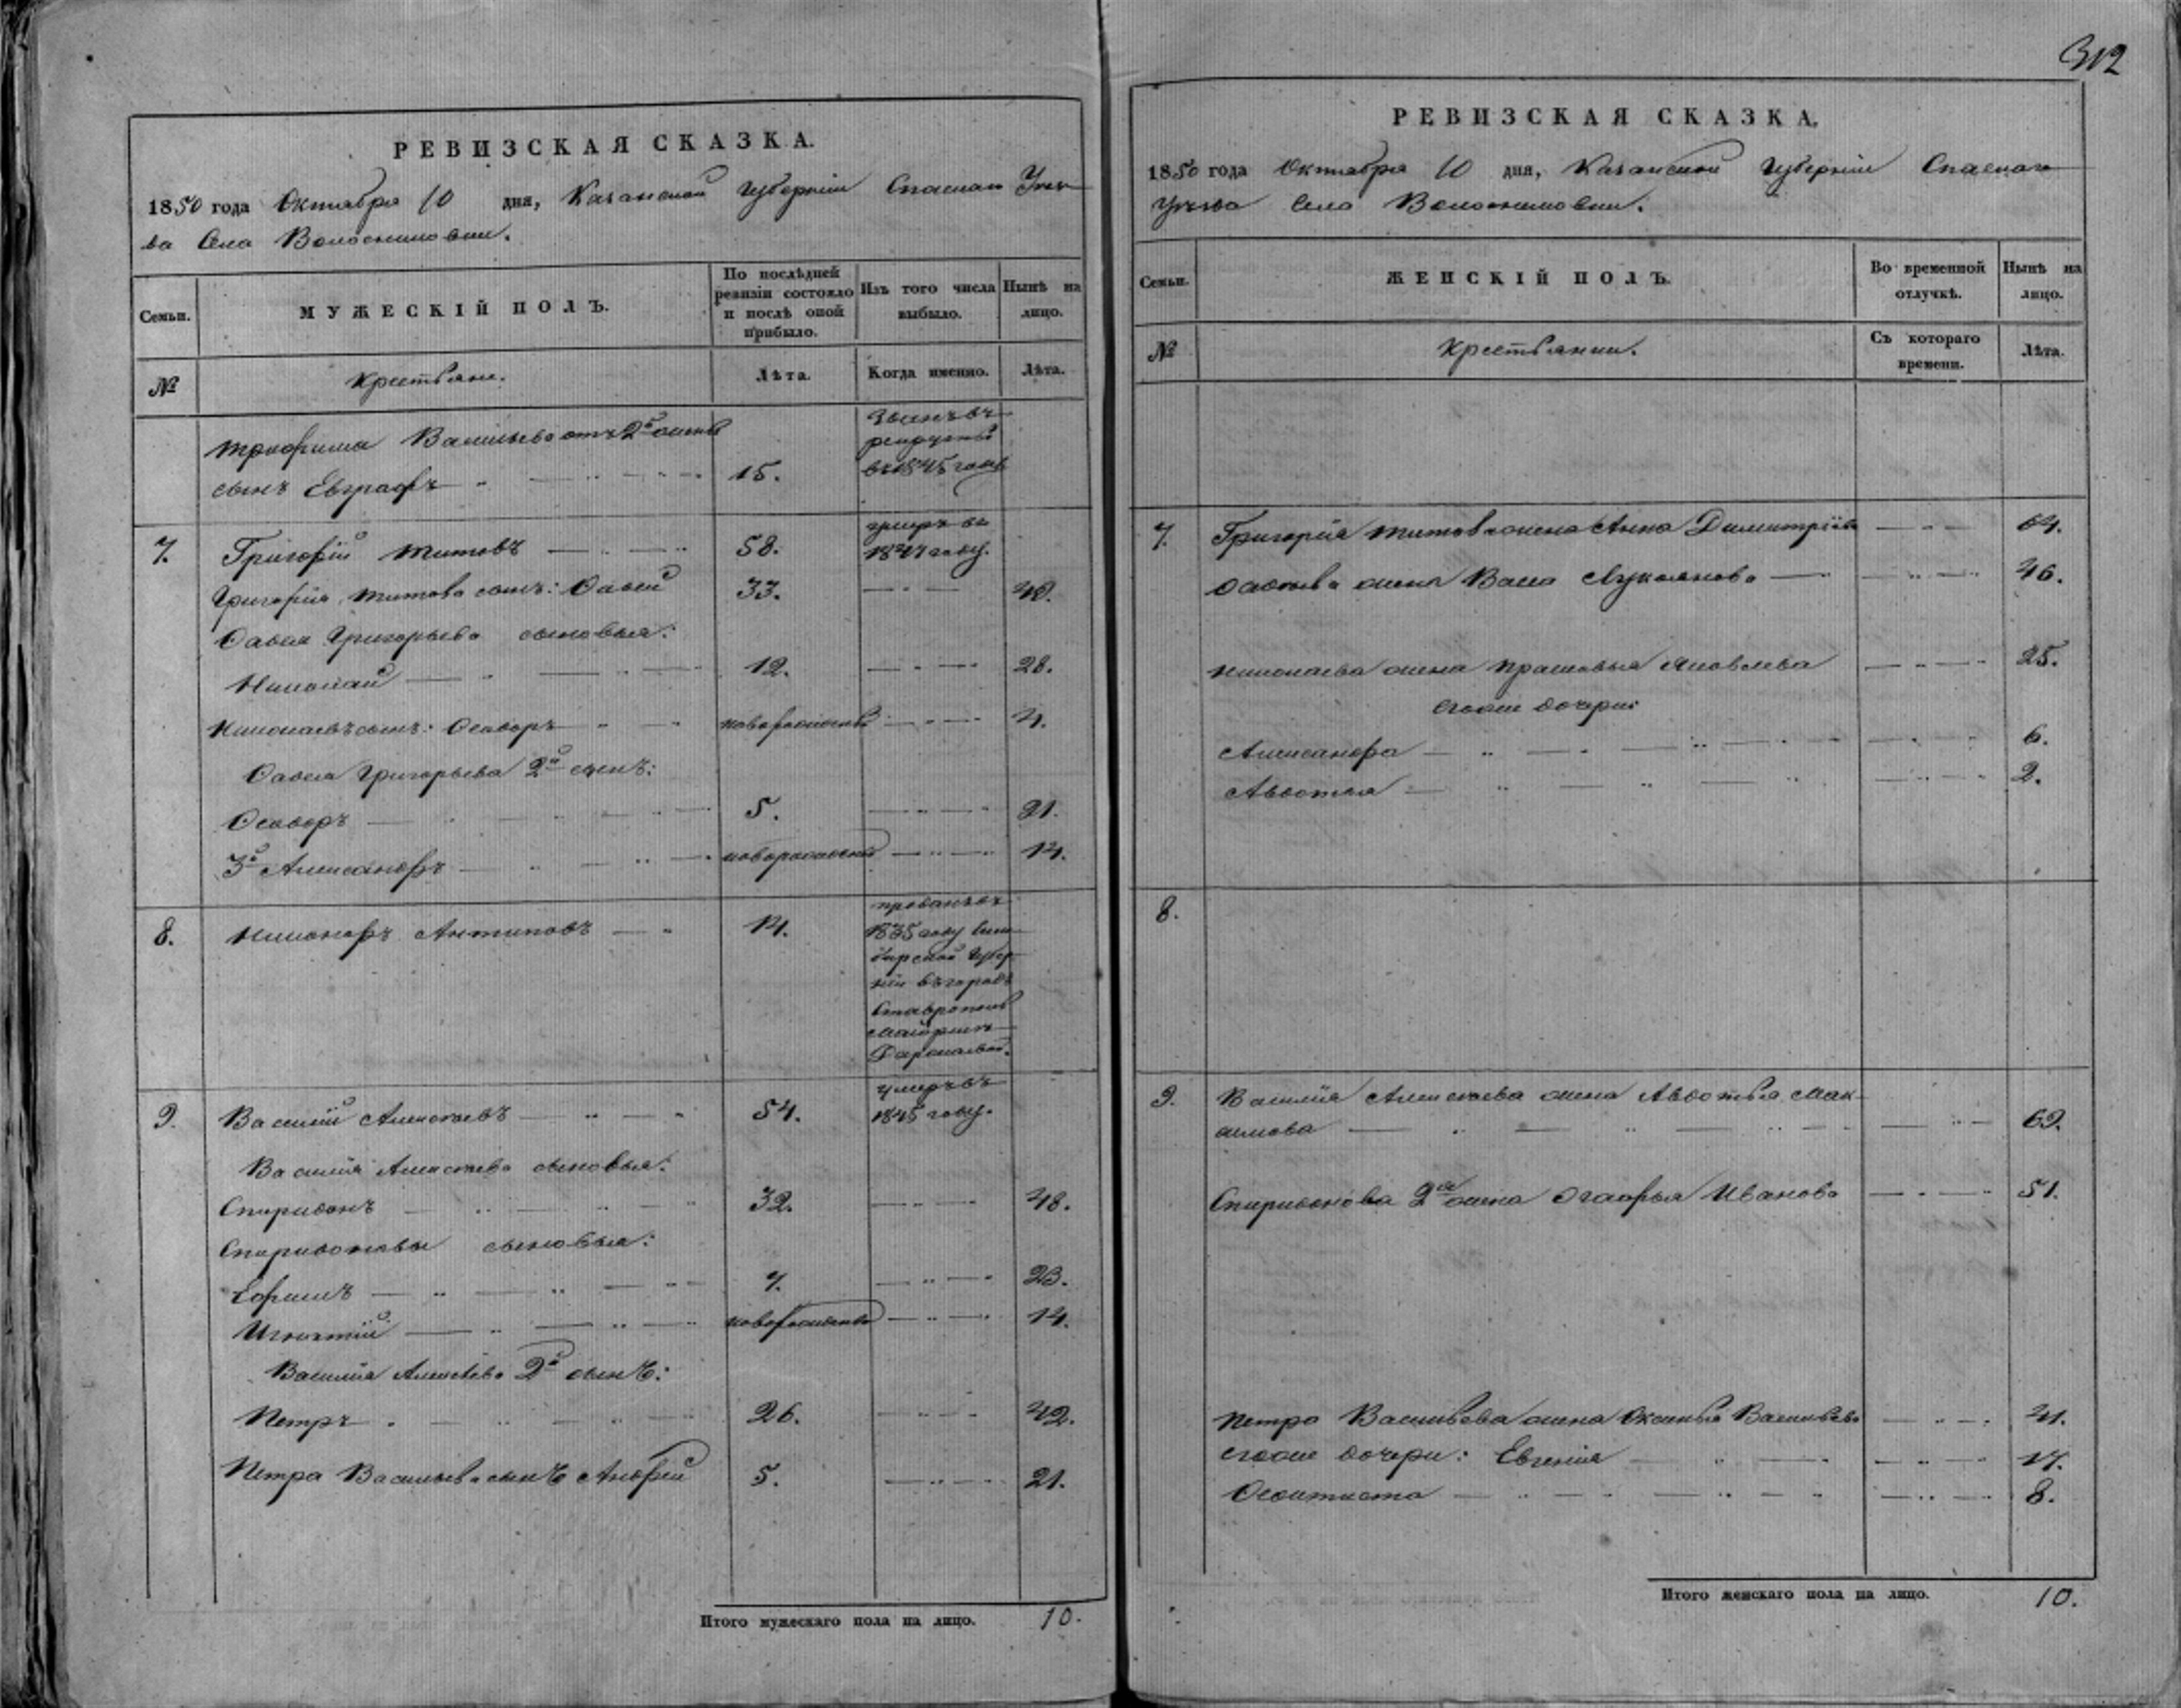 312
РЕВИЗСКАЯ СКАЗКА.
1850 года Октября 10 дня, Казанской Губерніи Спаскаго Уѣз
да Села
МУЖЕСКІЙ ПОЛЪ.
Семьи.
По послѣдней ревизіи состояло и послѣ оной прибыло.
Изъ того числа выбыло.
Нынѣ на лицо.
№
Крестьяне.
Лѣта.
Когда именно.
Лѣта.
Трофима Васильева отъ 2й жены
сынъ Евграфъ 15. въ рекруты въ 1845 году
7. Григорій Титовъ 58. умеръ въ 1847 году.
Григорія Титова сынъ: Савей 33. 49.
Савея Григорьева сыновья:
Николай 12. 28.
Николаевъ сынъ: Ѳедоръ новорожденный 4.
Савея Григорьева 2й сынъ:
Ѳедоръ 5. 21.
3й Александръ новорожденный 14.
8. Никаноръ Антиповъ 14. проданъ въ 1835 году Сим
бирской Губер
ніи въ городъ
Ставрополь
Маіоршѣ
9. Василій Алексѣевъ 54. умеръ въ 1845 году.
Василія Алексѣева сыновья:
Спиридонъ 32. 48.
Спиридоновы сыновья:
Ефимъ 7. 23.
Игнатій новорожденный 14.
Василія Алексѣева 2й сынъ:
Петръ 26. 42.
Петра Васильева сынъ Андрей 5. 21.
Итого мужескаго пола на лицо. 10.
РЕВИЗСКАЯ СКАЗКА.
1850 года Октября 10 дня, Казанской Губерніи Спаскаго
Уѣзда Села
Семьи.
ЖЕНСКІЙ ПОЛЪ.
Во временной отлучкѣ.
Нынѣ на лицо.
№
Крестьянки.
Съ котораго времени.
Лѣта.
7. Григорія Титова жена Анна Димитріева 64.
жена Васа Лукоянова 46.
Николаева жена Прасковья Яковлева 25.
егоже дочери:
Александра 6.
Авдотья 2.
8.
9. Василія Алексѣева жена Авдотья Мак
симова 69.
Спиридонова 2я жена Огафья Иванова 51.
Петра Васильева жена Оксинья Васильева 41.
егоже дочери: Евгенія 17.
Ѳеоктиста 8.
Итого женскаго пола на лицо. 10.